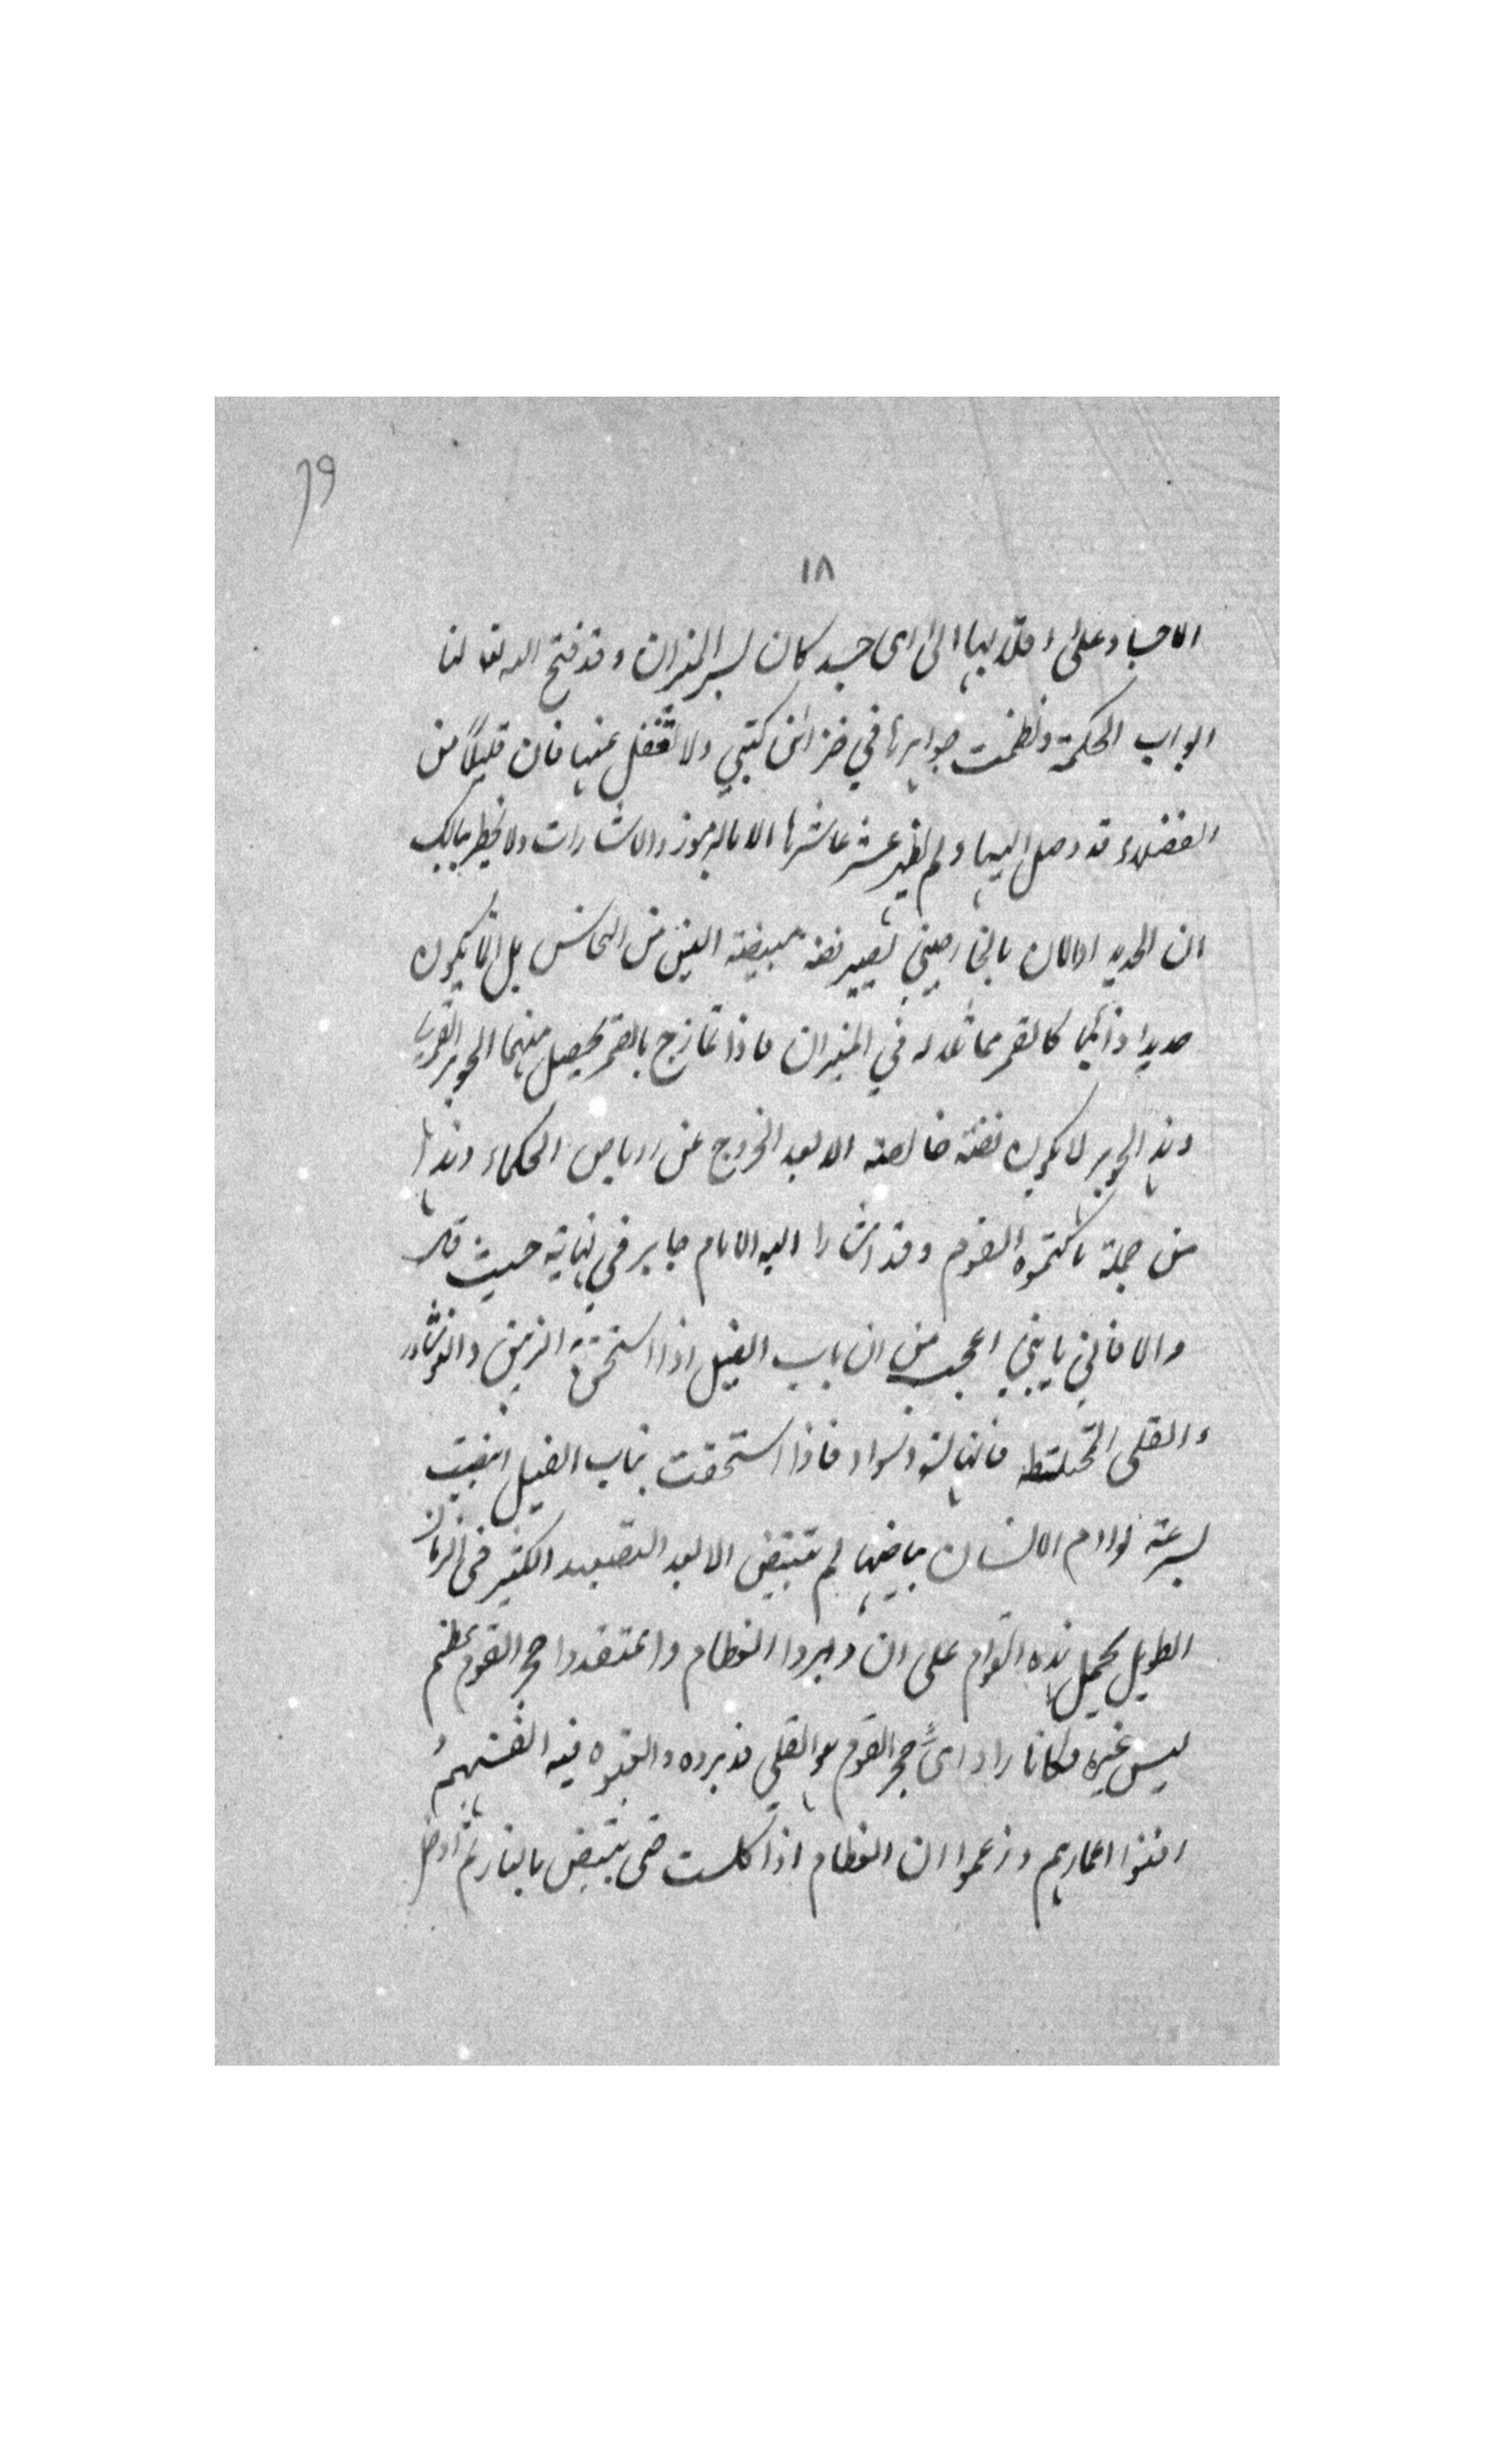 ٦٩
١٨
الاجساد وعلى اقلابها الى اى جسد كان لسر الميزان وقد فتح الله تعا لنا
ابواب الحكمة ونظمت جواهرها في خزائن كتبي ولا تغفل عنها فان قليلاً من
الفضلاء قد وصل اليها ولم يظهر عشر عاشرها الا بالرموز والاشارات ولا يخطر ببالك
ان الحديد اذا لان بالخارصيني يصير فضة مبيضة من النحاس بل انما يكون
حديدا ذائبا كالقمر مماثلا له في الميزان فاذا تمازج بالقمر يحصل منهما الجوهر القريب
وهذا الجوهر لا يكون فضة خالصة الا بعد الخروج عن رباص الحكماء وهذا
من جملة ما كتموه القوم وقد اشار اليه الامام جابر في نهايته حيث قال
والا فاني يا بني اعجب من ان ناب الفيل اذا استحق الزيبق والنوشادر
والقلى المختلطة فانها تسود فاذا استحقت بناب الفيل ابيضت
بسرعة لو ادام الانسان بياضها لم تبيض الا بعد التصعيد الكثير فى الزمان
الطويل يحمل هذه القوم على ان دبروا العظام واعتقدوا حجر القوم عظم
ليس غيره فكانما راد اى حجر القوم هو القلى فدبروه والقوه فيه انفسهم
افنوا اعمارهم وزعموا ان العظام اذا كلست حتى تبيض بالنار ثم ادخل